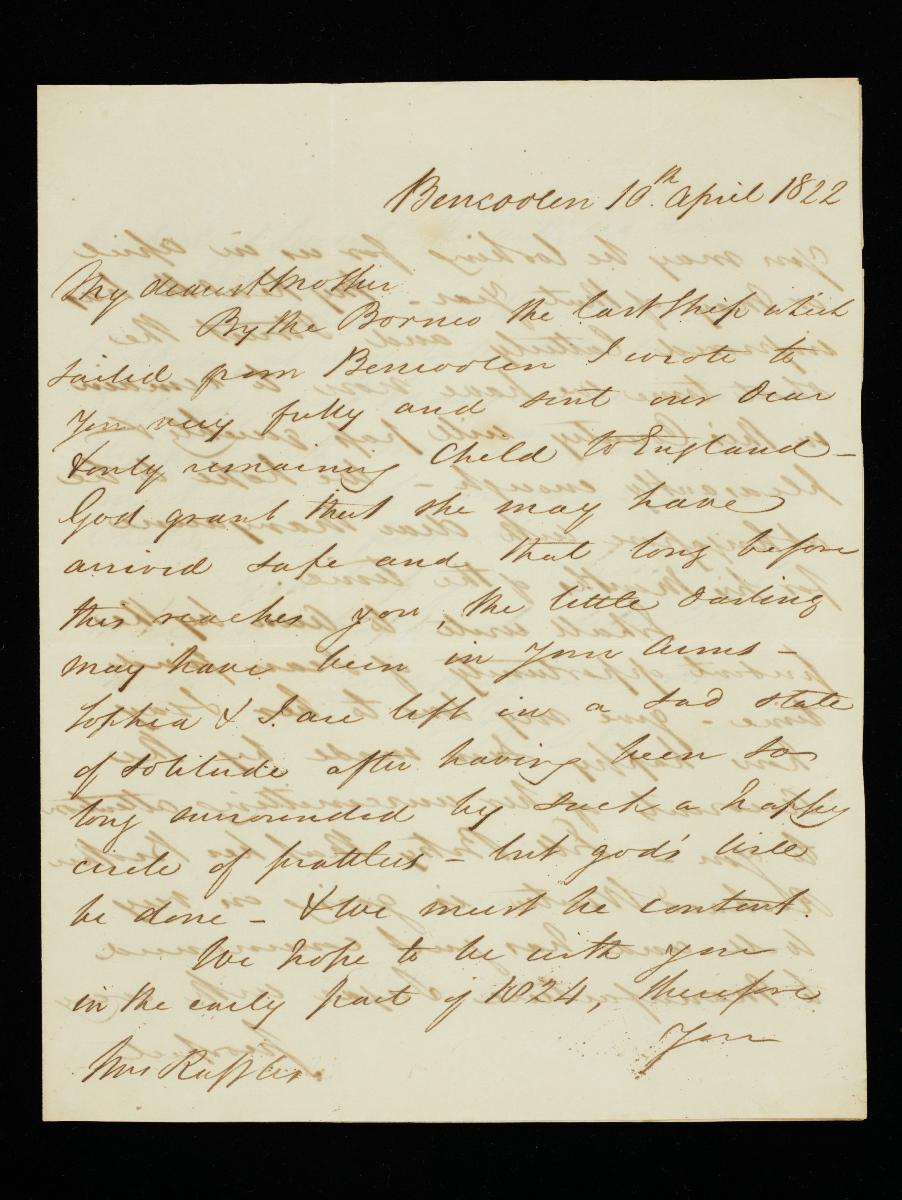 Bencoolen 10th. April 1822
My dearest Mother
By the Borneo the last Ship which
sailed from Bencoolen I wrote to
you very fully and sent our dear
& only remaining Child to England –
God grant that she may have
arrived safe and that long before
this reaches you, the little darling
may have been in your Arms –
Sophia & I are left in a sad state
of solitude after having been so
long surrounded by such a happy
circle of prattlers – but god's will
be done – & We must be content.
We hope to be with you
in the early part of 1824, therefore
you
Mrs Raffles.